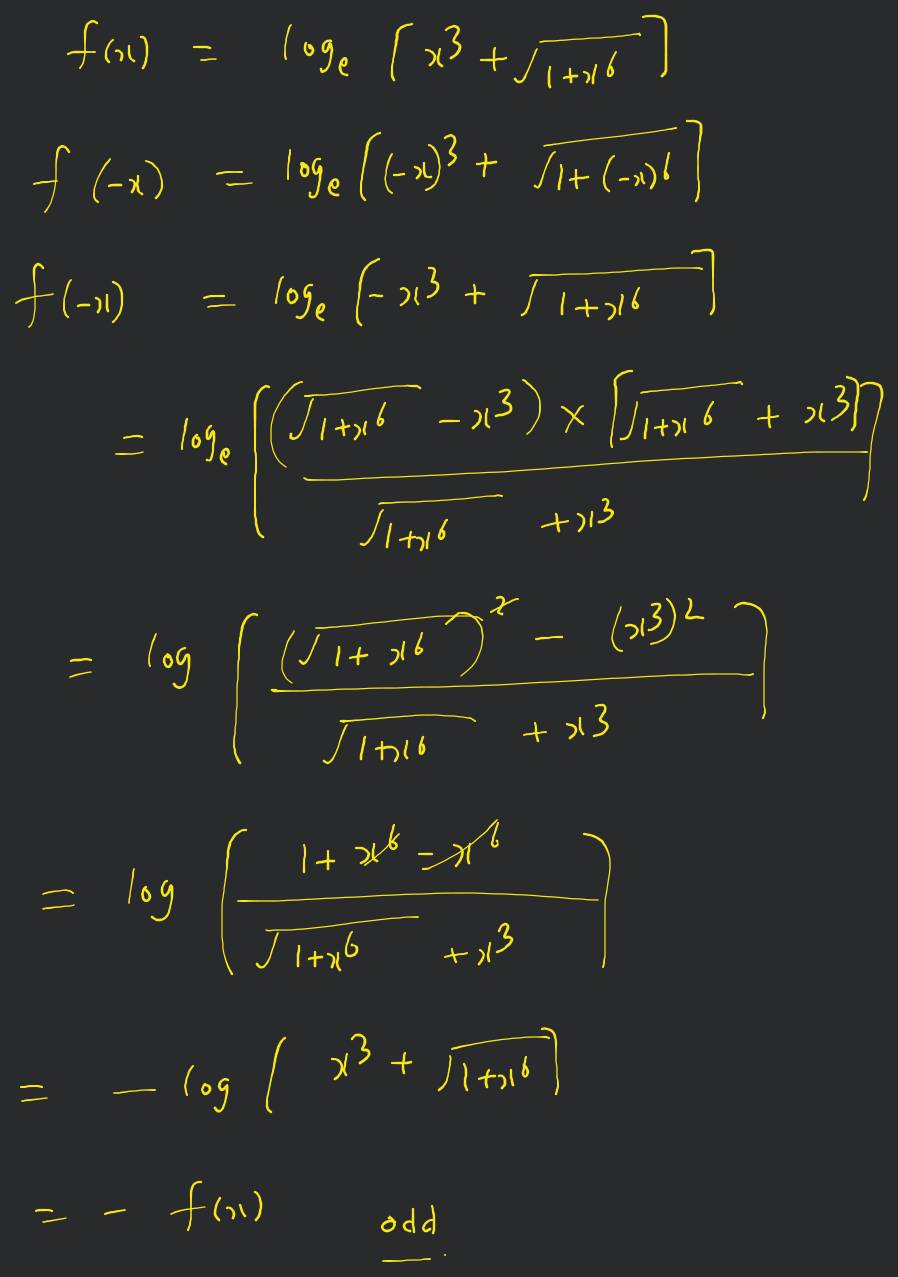 f(x) = log_e [x³ + √(1+x⁶)]
f(-x) = log_e [(-x)³ + √(1+(-x)⁶)]
f(-x) = log_e [-x³ + √(1+x⁶)]
= log_e [((√(1+x⁶) - x³) × [√(1+x⁶) + x³]) / (√(1+x⁶) + x³)]
= log [((√(1+x⁶))² - (x³)²) / (√(1+x⁶) + x³)]
= log [(1+x⁶-x⁶) / (√(1+x⁶) + x³)]
= - log [x³ + √(1+x⁶)]
= - f(x) odd.